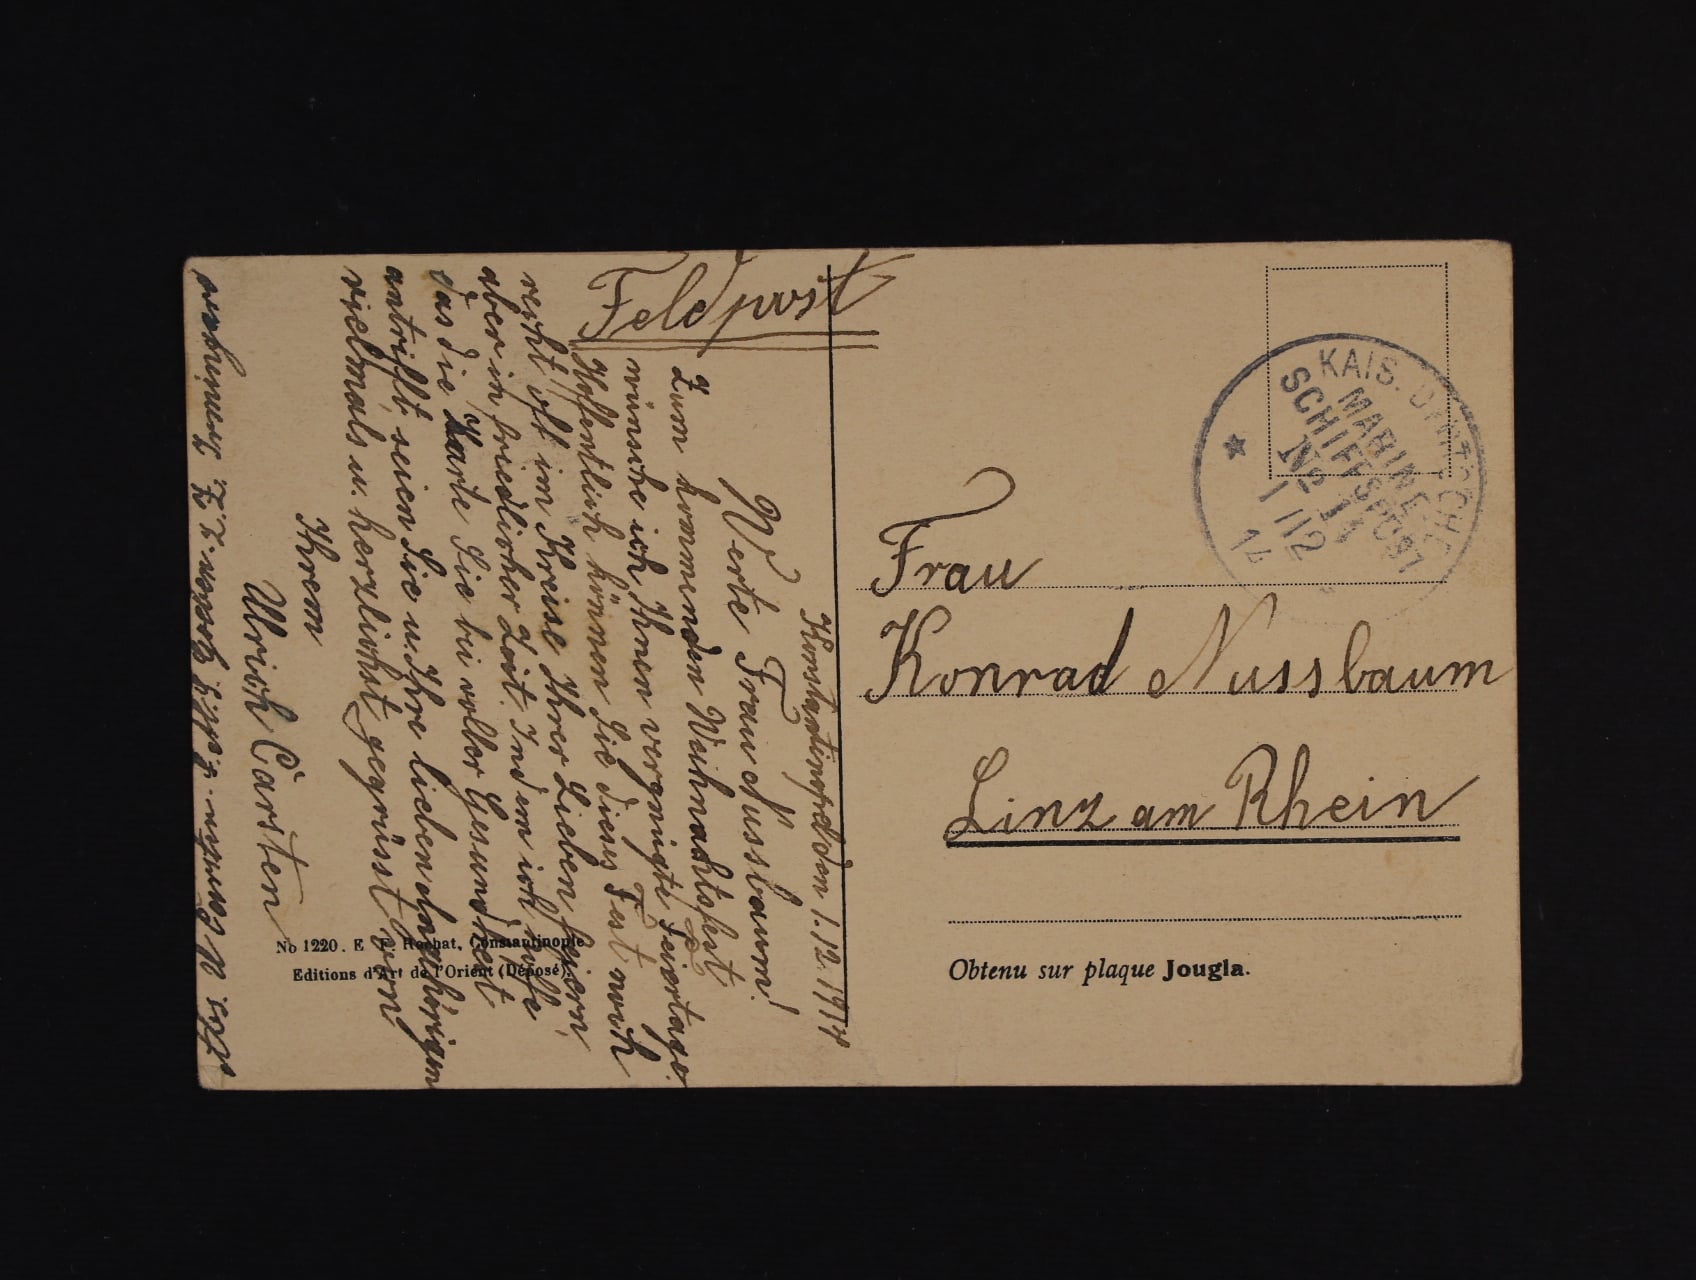 Feldpost
Konstantinopel den 1.12.1914
Werte Frau Nussbaum!
Zum kommenden Weihnachtsfest
wünsche ich Ihnen vergnügte Feiertage.
Hoffentlich können Sie dieses Fest noch
recht oft im Kreise Ihrer Lieben feiern,
aber in friedlicher Zeit. Indem ich hoffe
das die Karte Sie bei voller Gesundheit
antrifft, seien Sie u. Ihre lieben Angehörigen
vielmals u. herzlichst gegrüsst von
Ihrem
Ulrich Carsten
No 1220. E. F. Rochat, Constantinople
Editions d'Art de l'Orient (Déposé).
KAIS. DEUTSCHE
MARINE-
SCHIFFSPOST
No
1 12
14
Frau
Konrad Nussbaum
Linz am Rhein
Obtenu sur plaque Jougla.